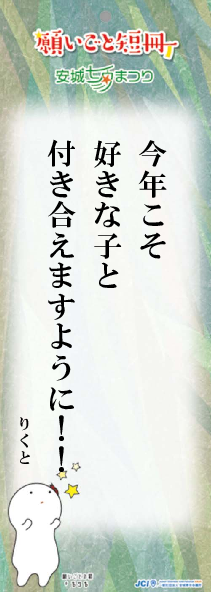 願いごと短冊
安城七夕まつり
今年こそ
好きな子と
付き合えますように！！
りくと
JCI